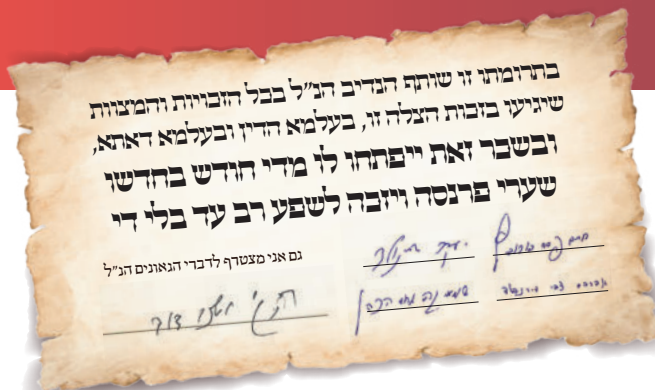 בתרומתו זו שותף הנדיב הנ"ל בכל הזכויות והמצוות
שיגיעו בזכות הצלה זו, בעלמא הדין ובעלמא דאתא,
ובשכר זאת ייפתחו לו מדי חודש בחדשו
שערי פרנסה ויזכה לשפע רב עד בלי די
גם אני מצטרף לדברי הגאונים הנ"ל